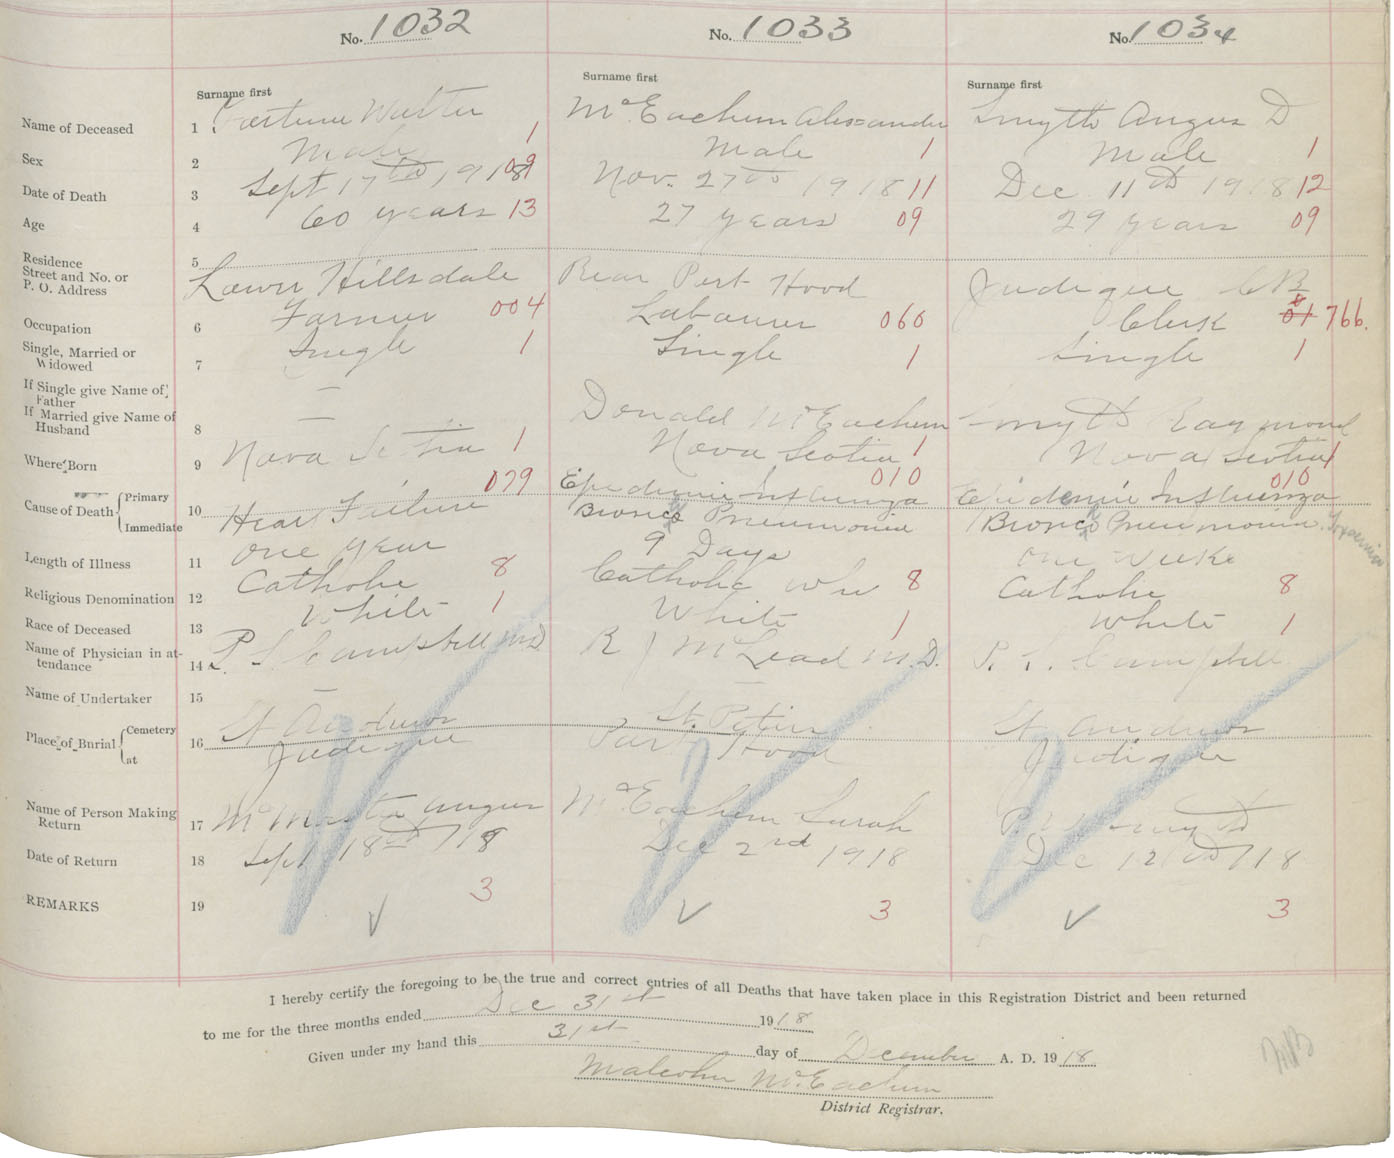 No. 1032 No. 1033 No. 1034
Surname first Surname first Surname first
Name of Deceased 1 Walter 1 McEachern Alexander Smyth Angus D
Sex 2 Male 09 Male 1 Male 1
Date of Death 3 Sept 17th 1918 Nov. 27th 1918 11 Dec 11th 1918 12
Age 4 60 years 13 27 years 09 29 years 09
Residence
Street and No. or
P. O. Address 5 Lower Hillsdale Rear Port Hood Judique CB
Occupation 6 Farmer 004 Labourer 060 Clerk 01 766.
Single, Married or
Widowed 7 Single 1 Single 1 Single 1
If Single give Name of
Father
If Married give Name of
Husband 8 — — Donald McEachern Smyth Raymond
Where Born 9 Nova Scotia 1 Nova Scotia 1 Nova Scotia 1
079 010 010
Cause of Death { Primary 10 Epidemic Influenza Epidemic Influenza
Immediate Heart Failure Bronco Pneumonia Bronco Pneumonia
Length of Illness 11 One year 9 Days One Week
Religious Denomination 12 Catholic 8 Catholic 8 Catholic 8
Race of Deceased 13 White 1 White 1 White 1
Name of Physician in at-
tendance 14 P. L Campbell MD R J McLeod M.D. P. L. Campbell
Name of Undertaker 15 — —
Place of Burial { Cemetery 16 St Andrews St. Peters St Andrews
at Judique Port Hood Judique
Name of Person Making
Return 17 McMaster Angus McEachern Sarah Smyth
Date of Return 18 Sept 18th 1918 Dec 2nd 1918 Dec 12th 1918
REMARKS 19 3 3 3
I hereby certify the foregoing to be the true and correct entries of all Deaths that have taken place in this Registration District and been returned
to me for the three months ended Dec 31st 1918
Given under my hand this 31st day of December A. D. 1918
Malcolm McEachern
District Registrar.